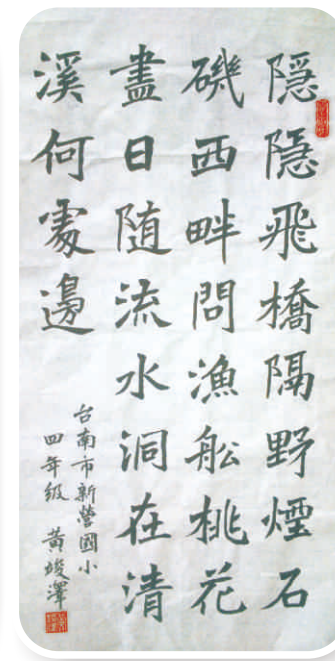 隱隱飛橋隔野煙石
磯西畔問漁船桃花
盡日随流水洞在清
溪何處邊
台南市新營國小
四年級 黃竣澤